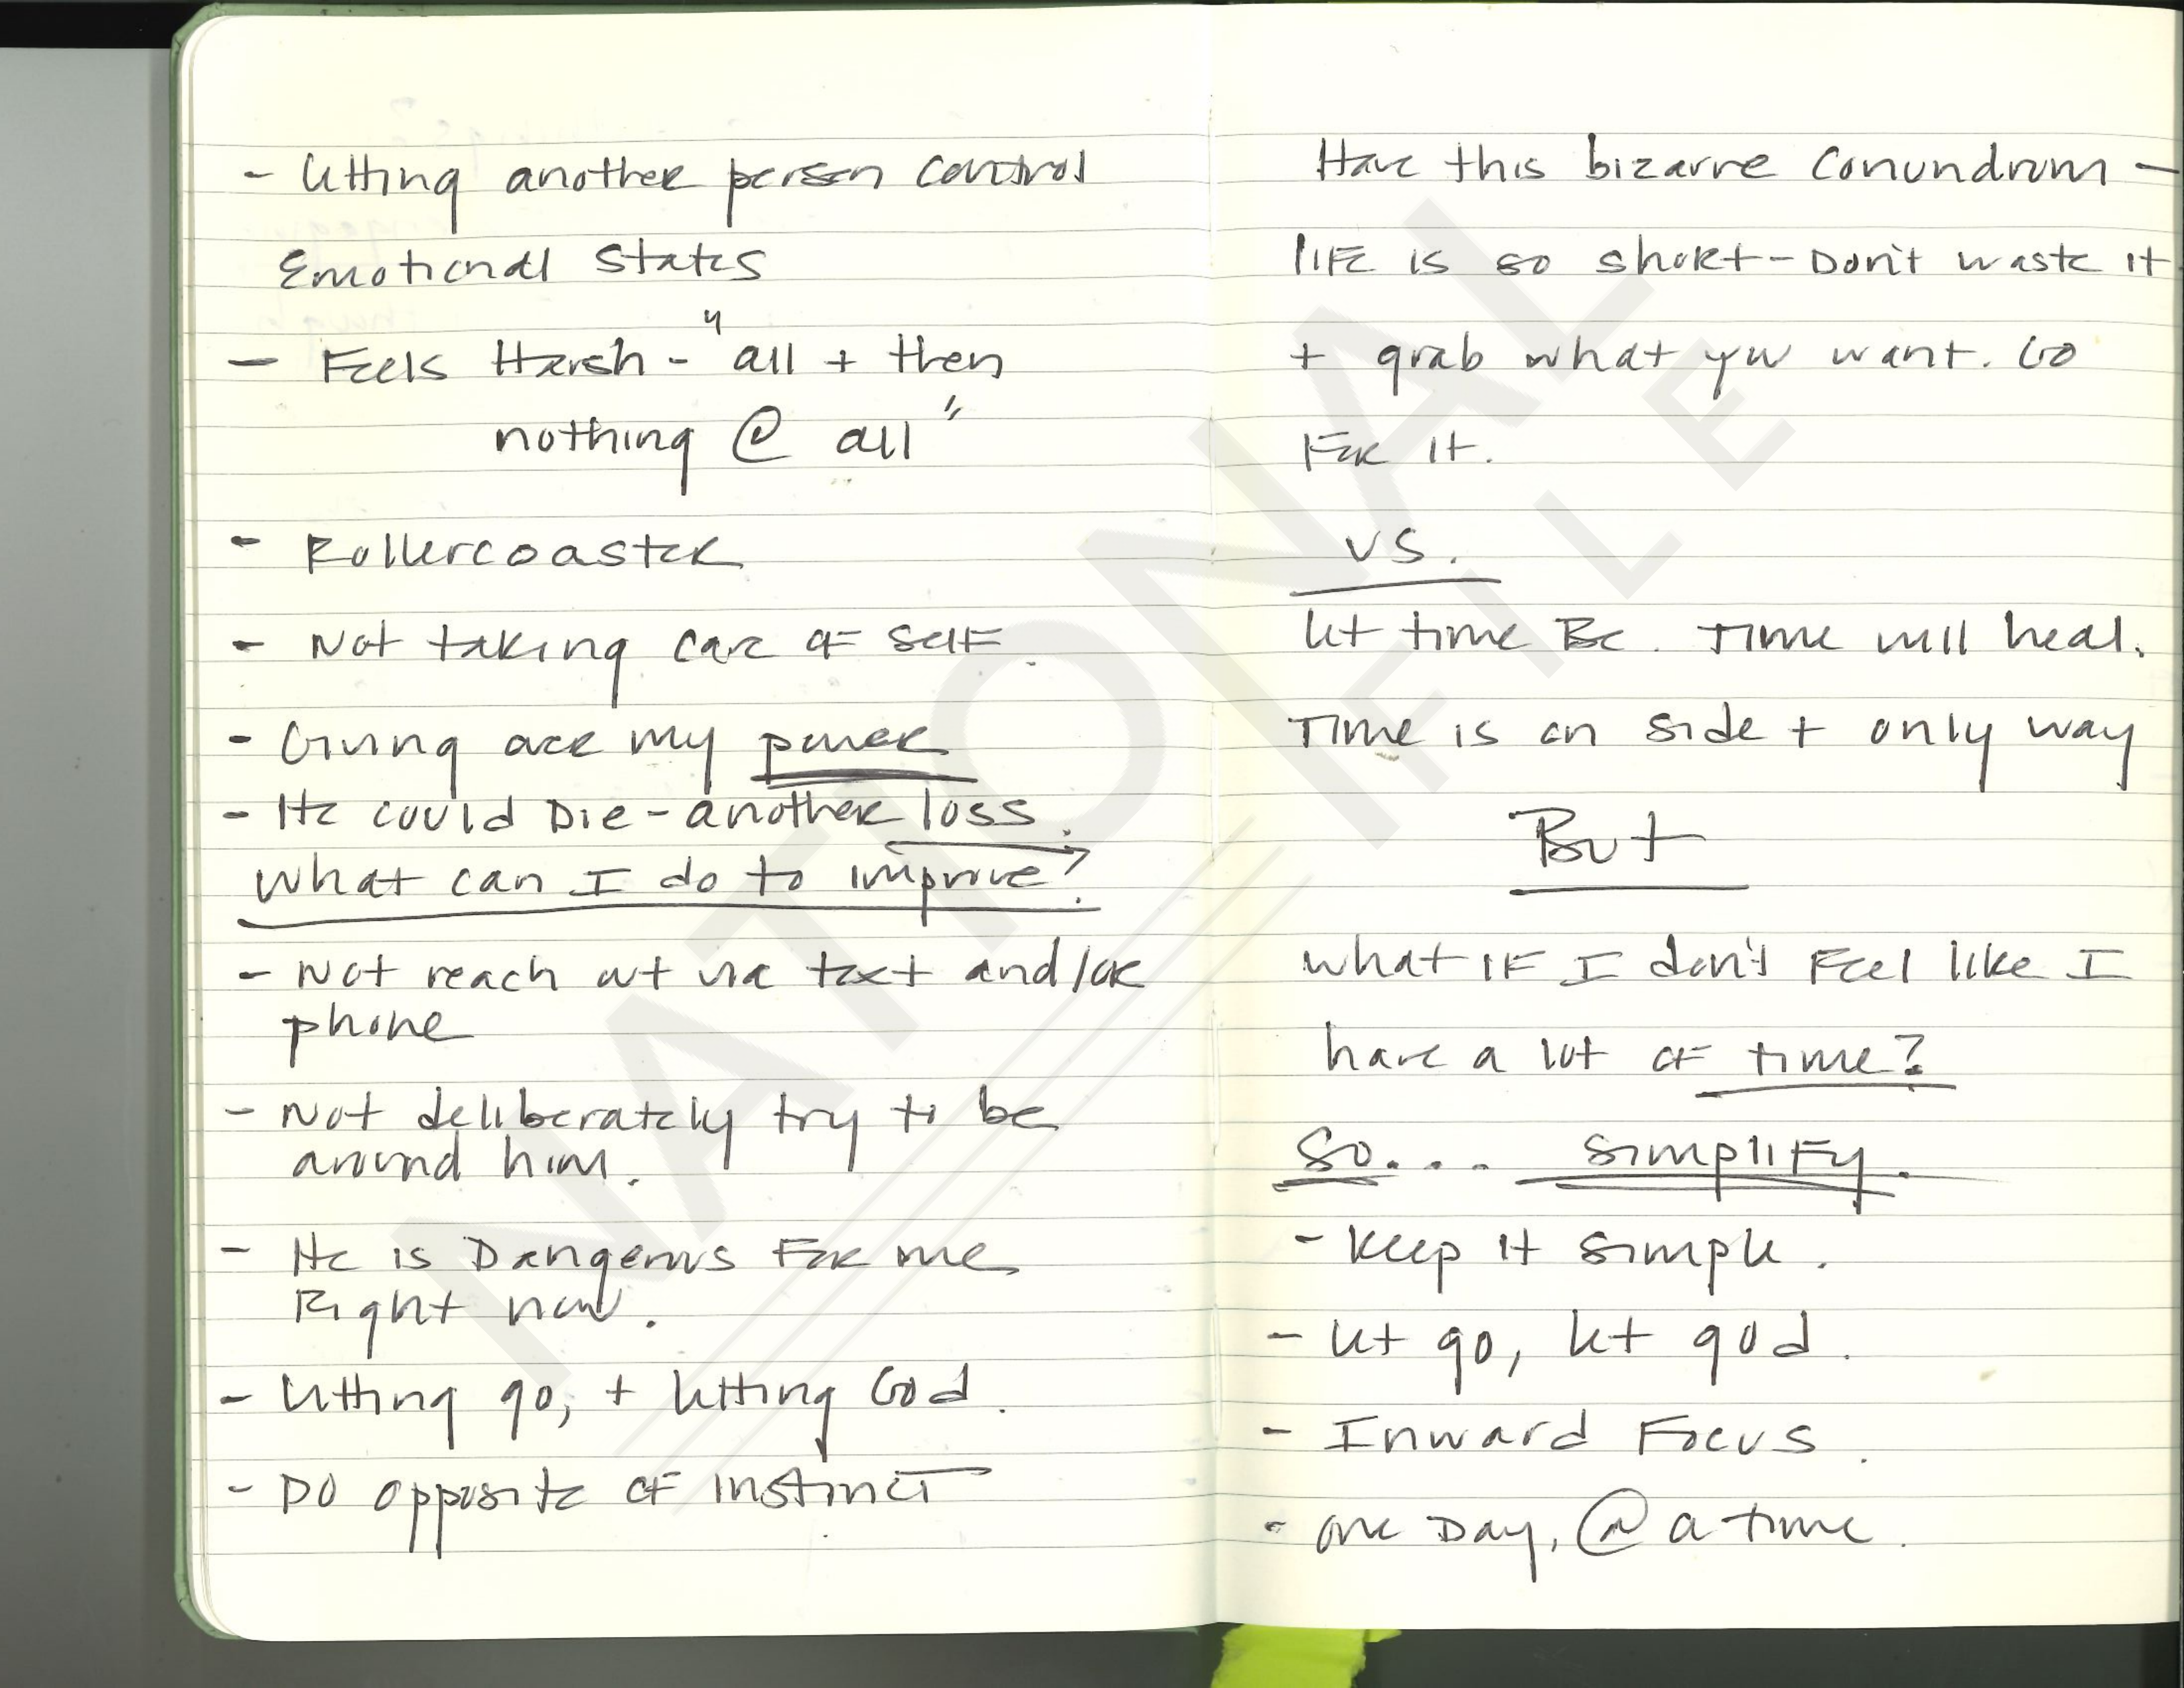 - Letting another person control
Emotional States
- Feels Harsh - "all + then
nothing @ all"
- Rollercoaster
- Not taking care of self.
- Giving over my power
- He could Die - another loss.
What can I do to improve?
- Not reach out via text and/or
phone
- Not deliberately try to be
around him.
- He is Dangerous For me
Right now.
- Letting go, + letting God.
- Do opposite of instinct
Have this bizarre conundrum -
life is so short - Don't waste it
+ grab what you want. Go
For it.
vs.
let time Be. Time will heal.
Time is on side + only way
But
what if I don't Feel like I
have a lot of time?
So.... simplify.
- keep it simple.
- let go, let god.
- Inward Focus.
- one Day, @ a time.
NATIONAL
FILE